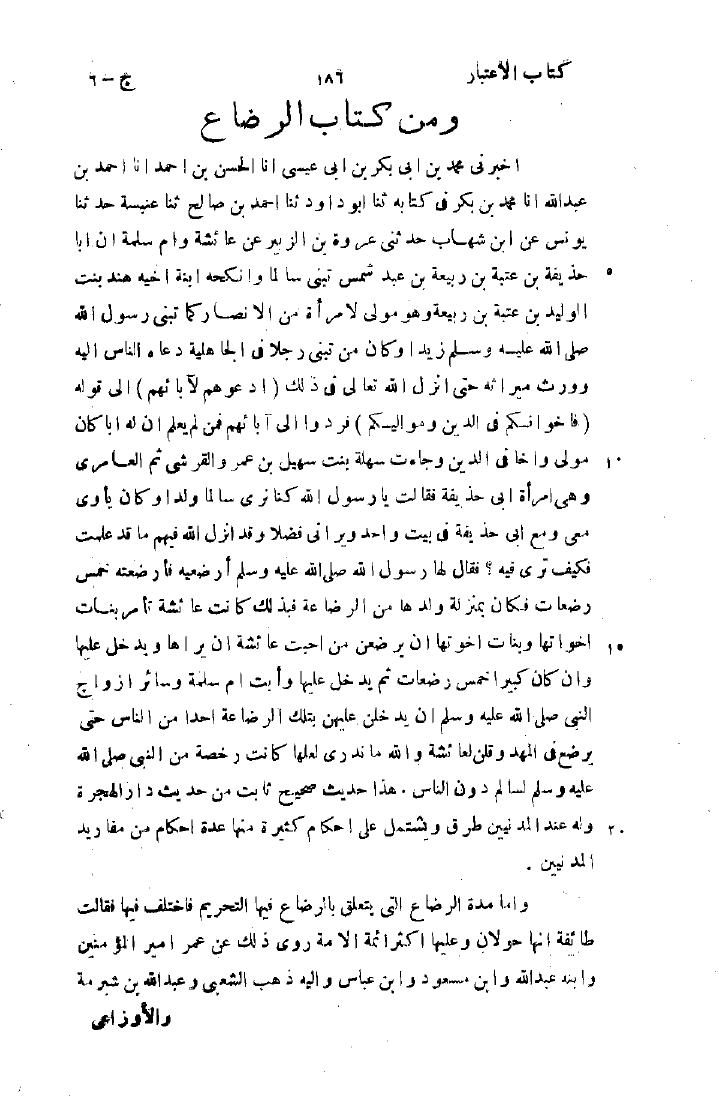 كتاب الاعتبار ١٨٦ ج – ٦
ومن كتاب الرضاع
اخبرنى محمد بن ابى بكر بن ابى عيسى انا الحسن بن احمد انا احمد بن
عبدالله انا محمد بن بكر فى كتابه ثنا ابو داود ثنا احمد بن صالح ثنا عنبسة حدثنا
يونس عن ابن شهاب حدثنى عروة بن الزبير عن عائشة وام سلمة ان ابا
حذيفة بن عتبة بن ربيعة بن عبد شمس تبنى سالما وانكحه ابنة اخيه هند بنت ٥
الوليد بن عتبة بن ربيعة وهو مولى لامرأة من الانصار كما تبنى رسول الله
صلى الله عليه وسلم زيدا وكان من تبنى رجلا فى الجاهلية دعاه الناس اليه
وورث ميراثه حتى انزل الله تعالى فى ذلك (ادعوهم لآبائهم) الى قوله
(فاخوانكم فى الدين ومواليكم) فردوا الى آبائهم فمن لم يعلم ان له ابا كان
مولى واخا فى الدين وجاءت سهلة بنت سهيل بن عمرو القرشى ثم العامرى ١٠
وهى امرأة ابى حذيفة فقالت يا رسول الله كنا نرى سالما ولدا وكان يأوى
معى ومع ابى حذيفة فى بيت واحد ويرانى فضلا وقد انزل الله فيهم ما قد علمت
فكيف ترى فيه ؟ فقال لها رسول الله صلى الله عليه وسلم أرضعيه فأرضعته خمس
رضعات فكان بمنزلة ولدها من الرضاعة فبذلك كانت عائشة تأمر بنات
اخواتها وبنات اخوتها ان يرضعن من احبت عائشة ان يراها ويدخل عليها ١٥
وان كان كبيرا خمس رضعات ثم يدخل عليها وأبت ام سلمة وسائر ازواج
النبى صلى الله عليه وسلم ان يدخلن عليهن بتلك الرضاعة احدا من الناس حتى
يرضع فى المهد وقلن لعائشة والله ما ندرى لعلها كانت رخصة من النبى صلى الله
عليه وسلم لسالم دون الناس . هذا حديث صحيح ثابت من حديث دار الهجرة
وله عند المدنيين طرق ويشتمل على احكام كثيرة منها عدة احكام من مفاريد ٢٠
المدنيين .
واما مدة الرضاع التى يتعلق بالرضاع فيها التحريم فاختلف فيها فقالت
طائفة انها حولان وعليها اكثر ائمة الامة روى ذلك عن عمر امير المؤمنين
وابنه عبدالله وابن مسعود وابن عباس واليه ذهب الشعبى وعبدالله بن شبرمة
والأوزاعى